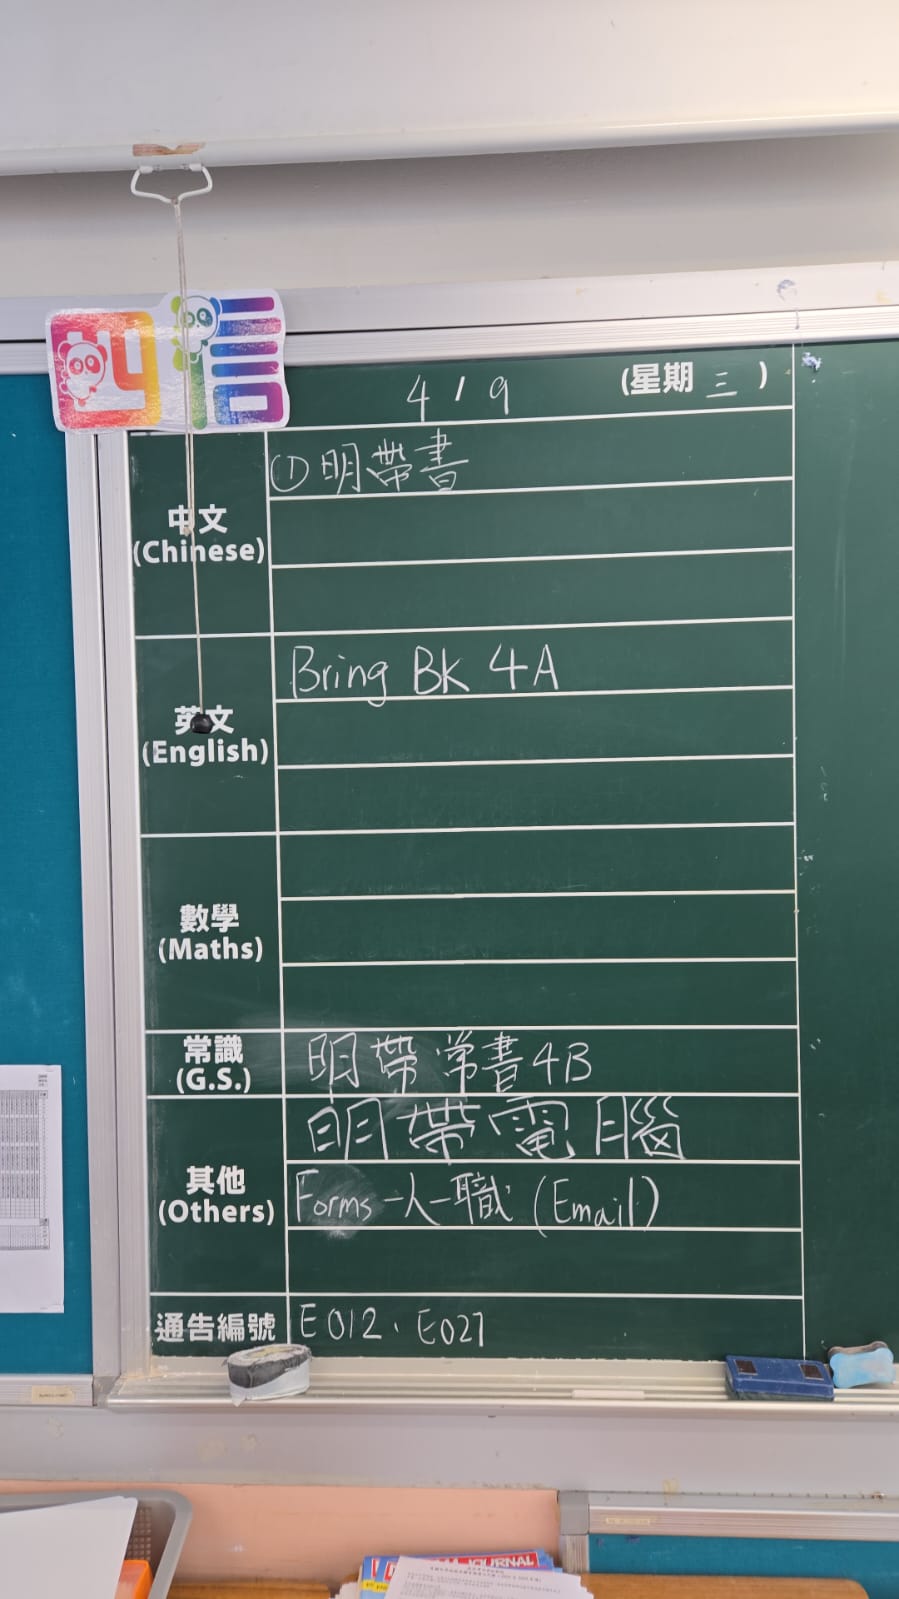 四信
4/9 (星期三)
中文
(Chinese)
①明帶書
英文
(English)
Bring BK 4A
數學
(Maths)
常識
(G.S.)
明帶常書4B
其他
(Others)
明帶電腦
Forms 一人一職 (Email)
通告編號
E012、E027
JOURNAL